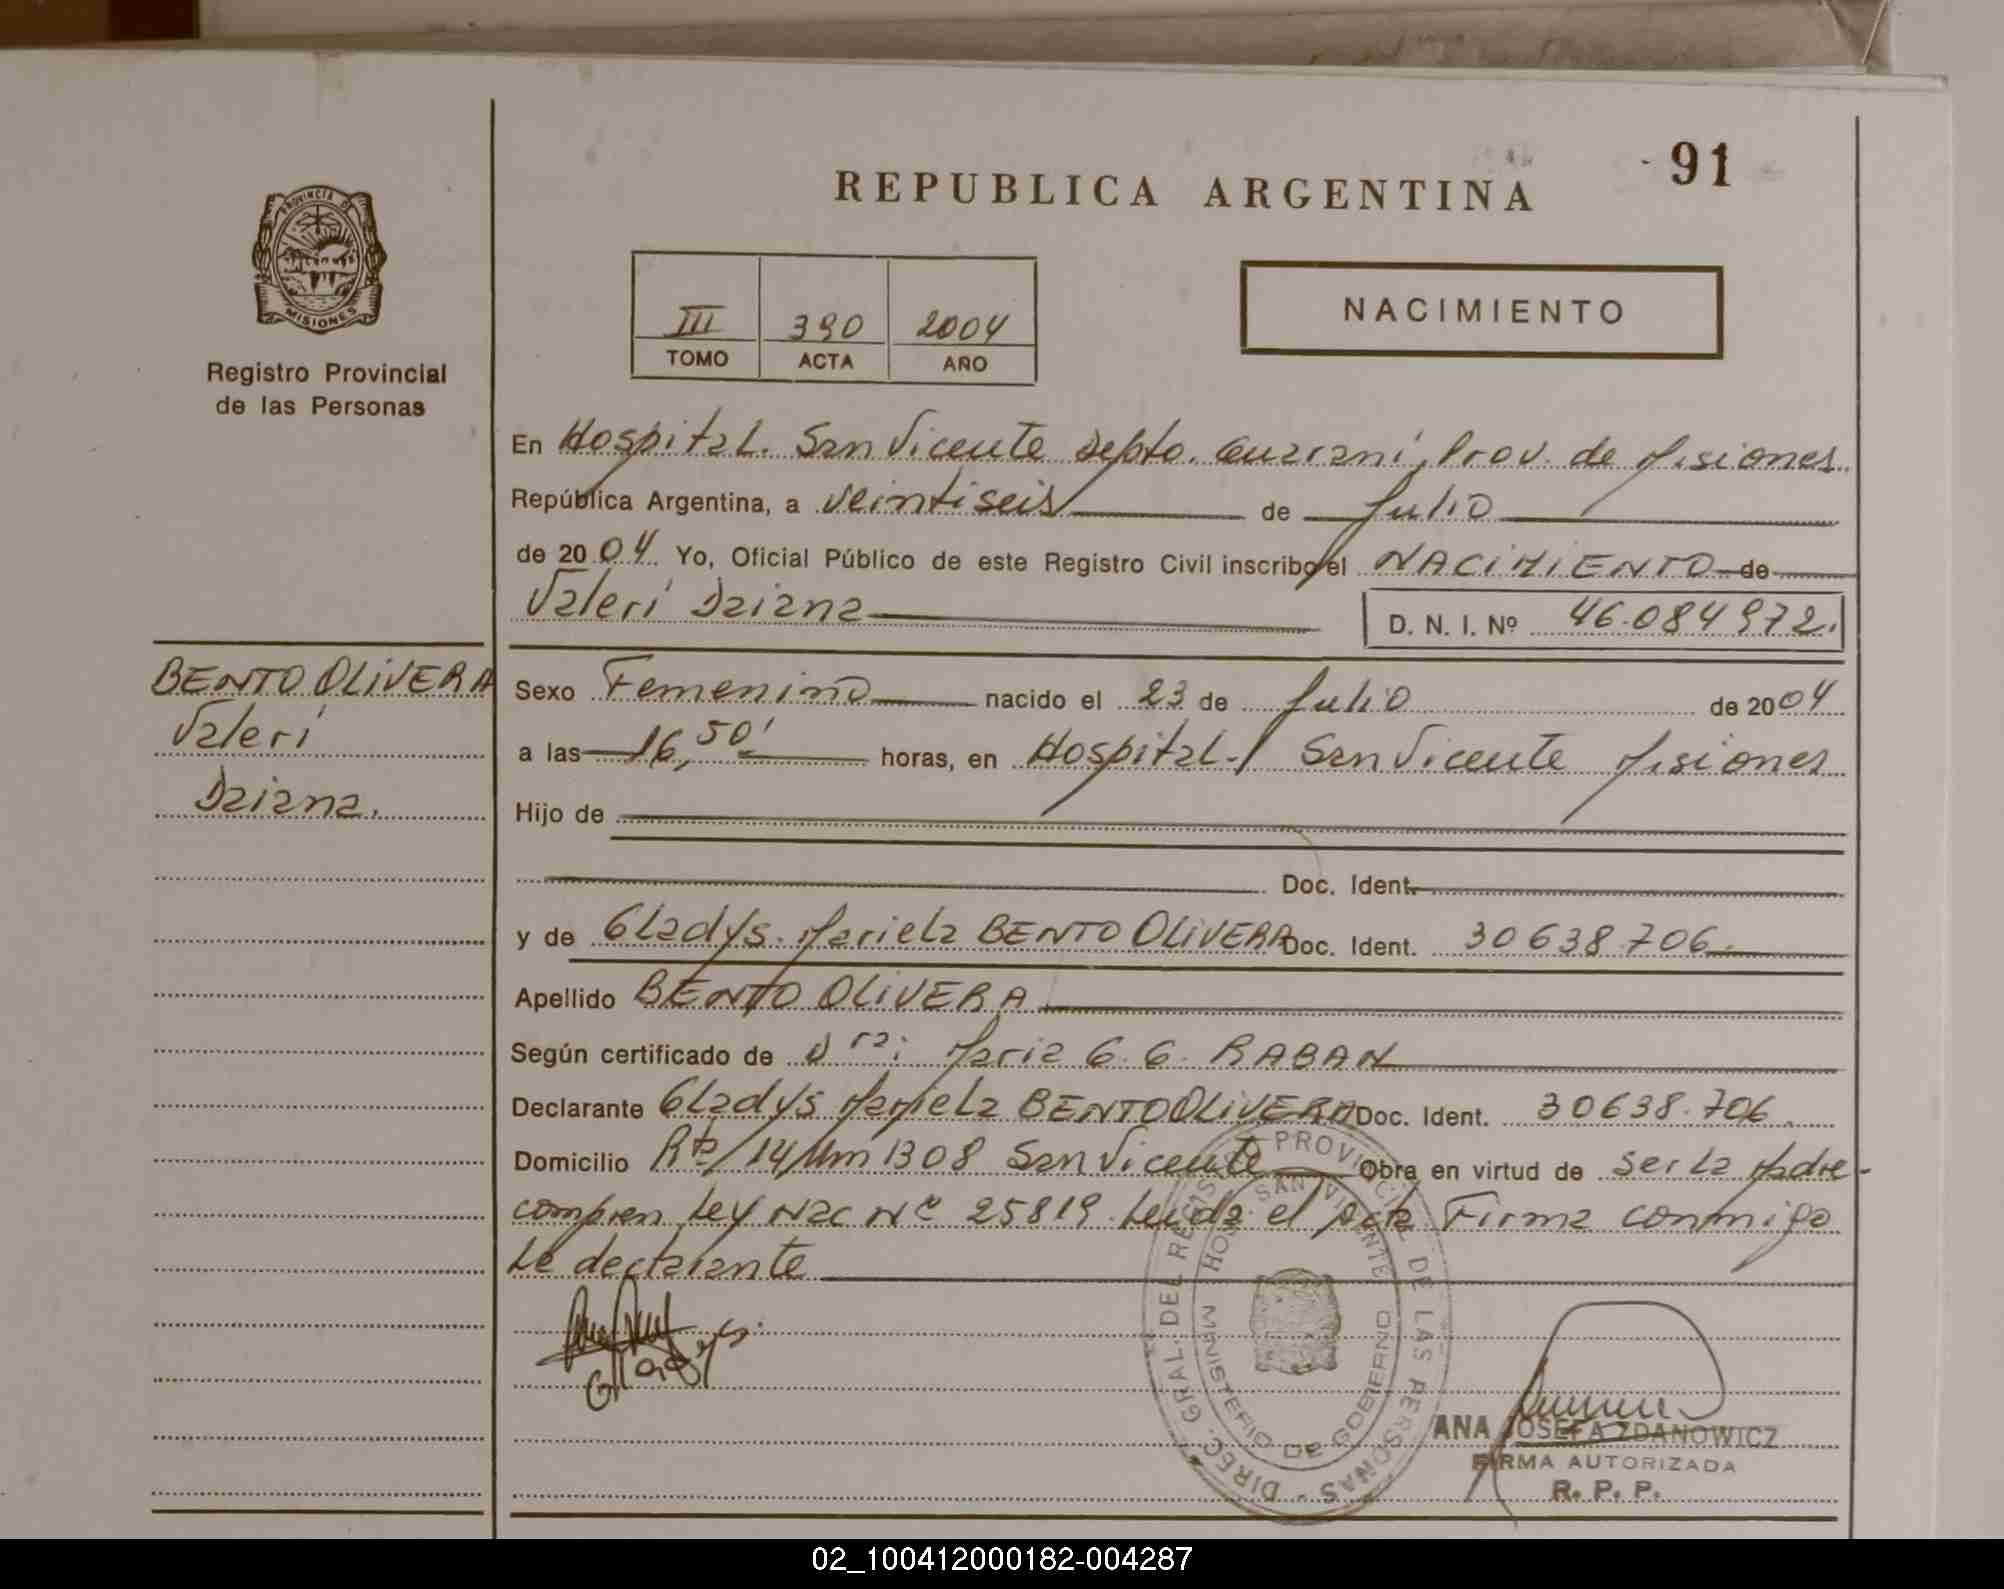 91
REPUBLICA ARGENTINA
PROVINCIA DE
MISIONES
Registro Provincial
de las Personas
III 390 2004
TOMO ACTA AÑO
NACIMIENTO
En Hospital. San Vicente Depto. Guarani, Prov. de Misiones.
República Argentina, a veintiseis de Julio
de 2004. Yo, Oficial Público de este Registro Civil inscribo el NACIMIENTO de
Valeri Daiana D. N. I. Nº 46.084972.
BENTO OLIVERA
Valeri
Daiana.
Sexo Femenino nacido el 23 de Julio de 2004
a las 16,50' horas, en Hospital-San Vicente Misiones
Hijo de
Doc. Ident.
y de Gladys. Mariela BENTO OLIVERA Doc. Ident. 30638.706.
Apellido BENTO OLIVERA
Según certificado de Dra: Maria G. G. RABAN
Declarante Gladys Mariela BENTO OLIVERA Doc. Ident. 30638.706.
Domicilio Rta/14/Km 1308 San Vicente Obra en virtud de ser la Madre-
compren Ley Nac Nº 25819. Leida el Acta Firma conmigo
La declarante
Gladys
DIREC. GRAL. DEL REGISTRO PROVINCIAL DE LAS PERSONAS -
HOSP. SAN VICENTE
MINISTERIO DE GOBIERNO
ANA JOSEFA ZDANOWICZ
FIRMA AUTORIZADA
R. P. P.
02_100412000182-004287